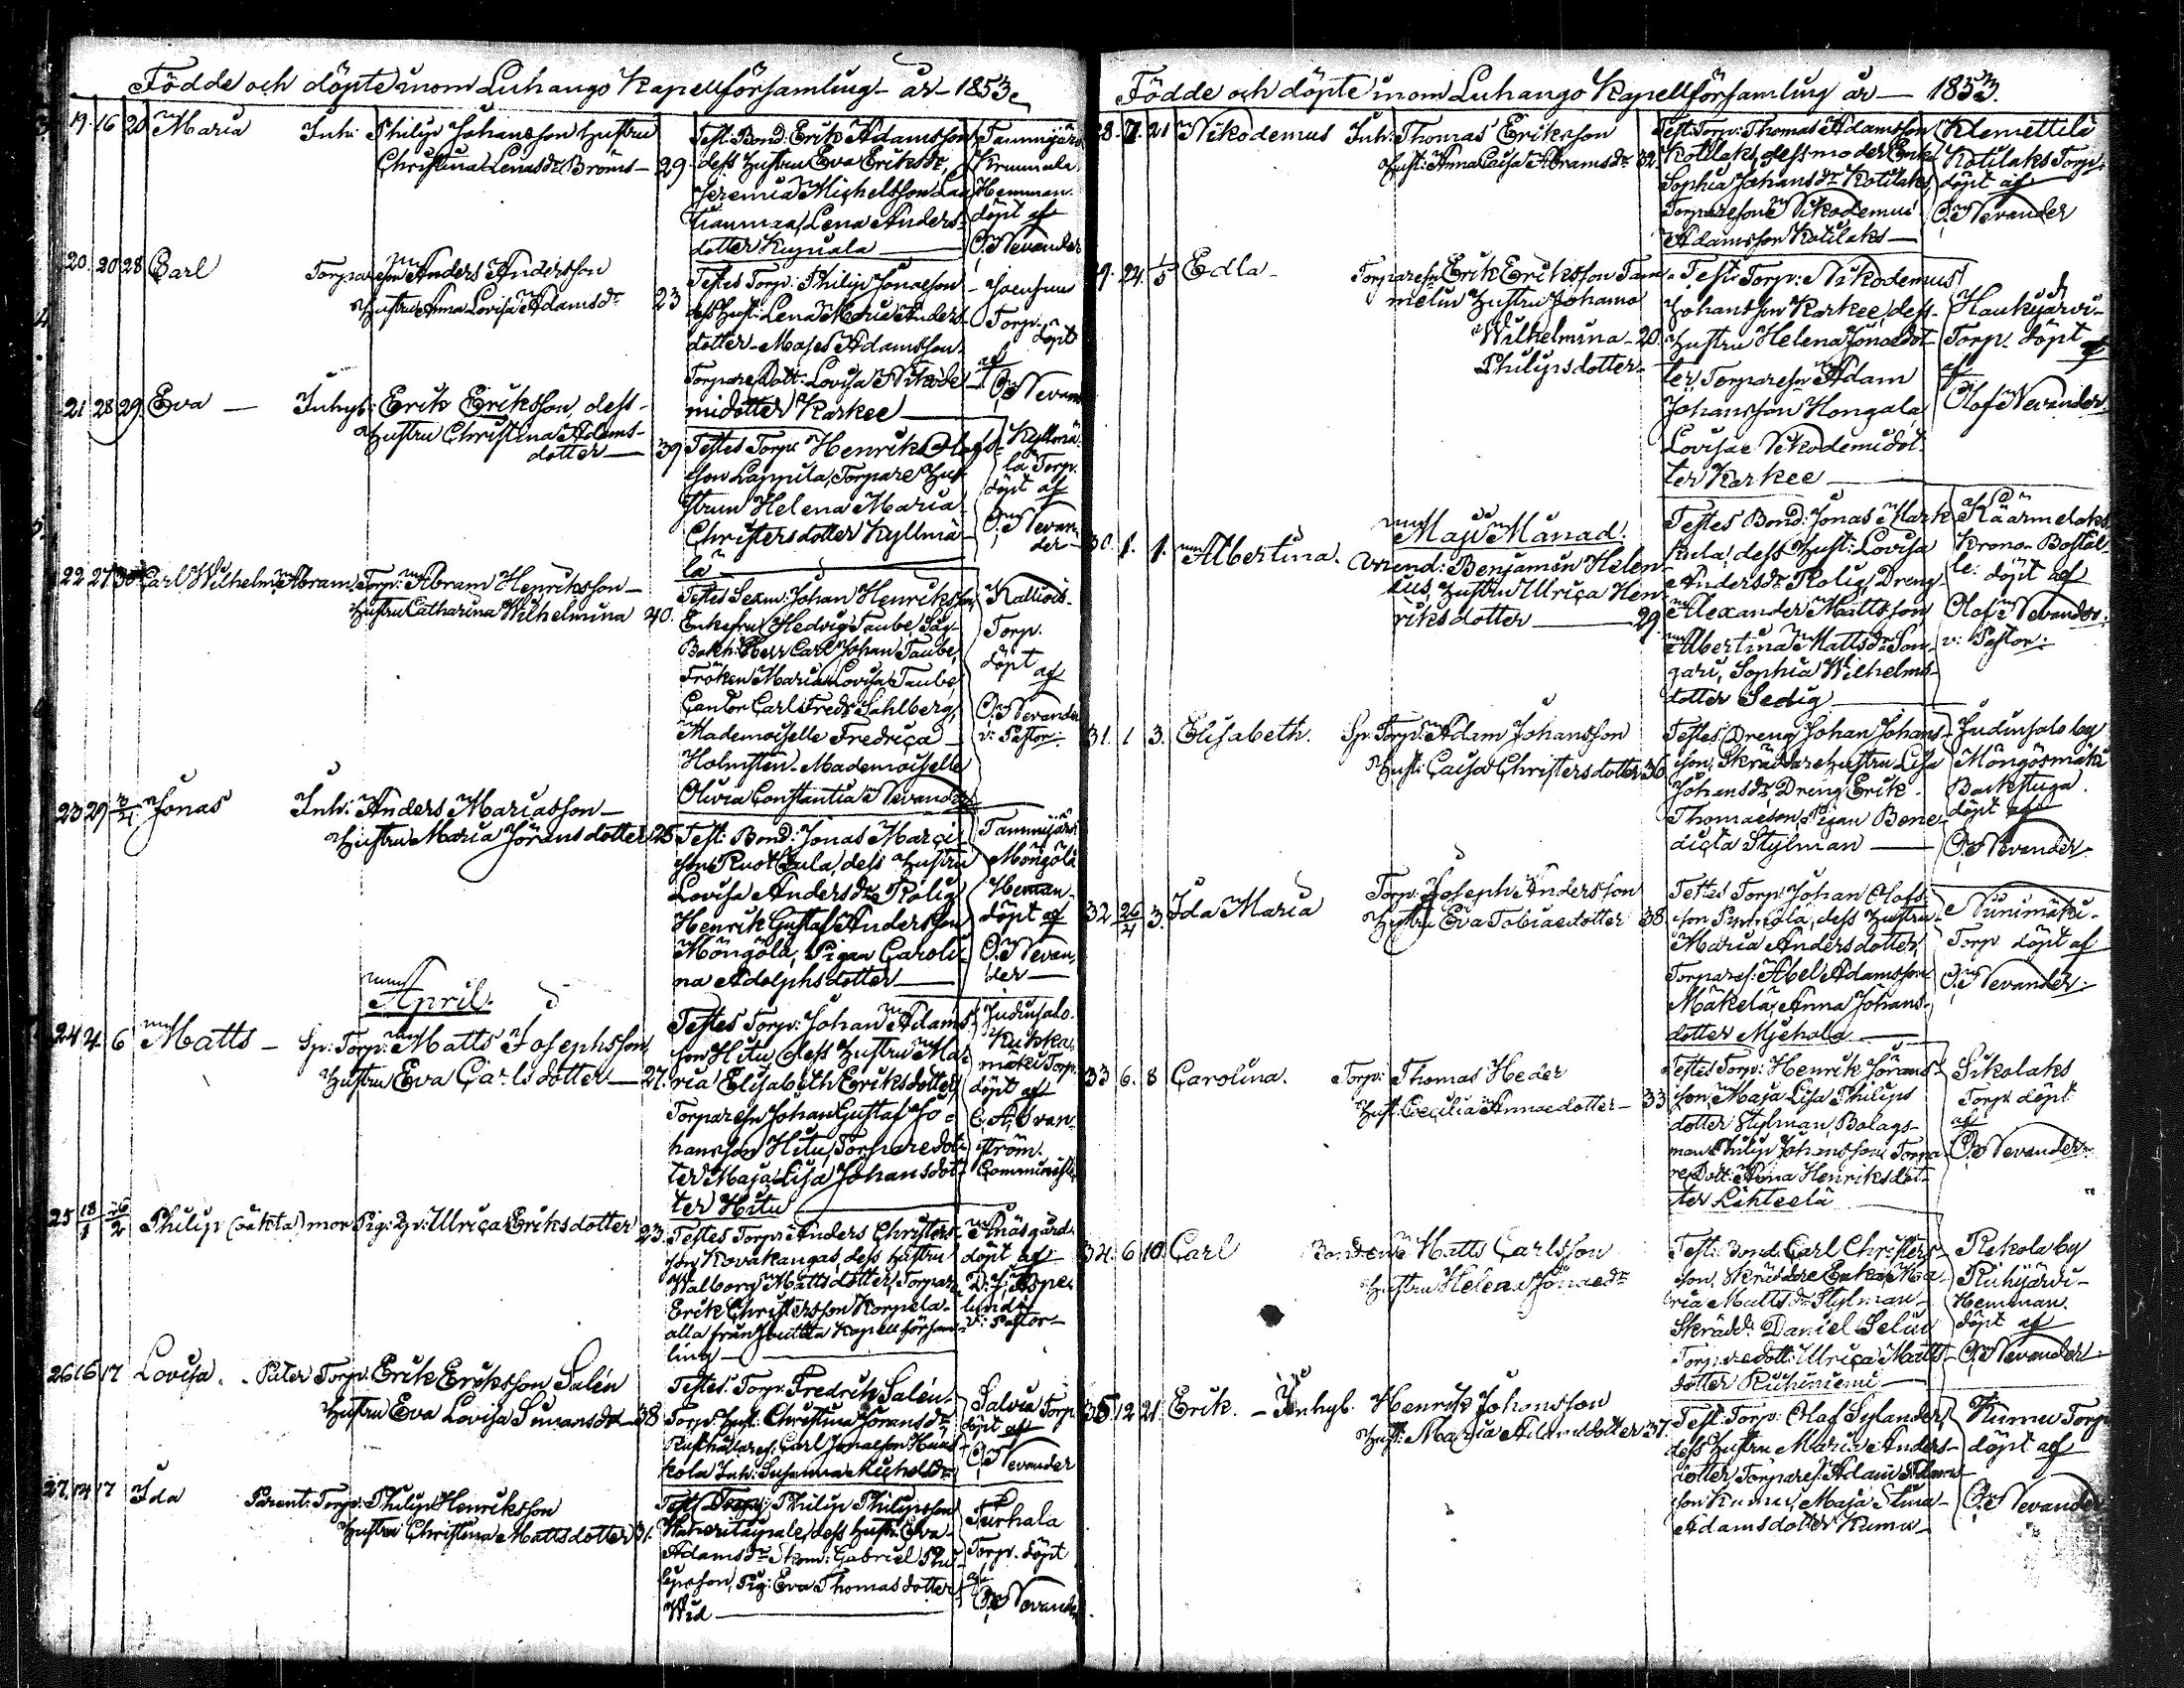 Födde och döpte inom Luhango Kapellförsamling år 1853.
19. 16 20 Maria Inh: Philip Johansson Hustru
Christina Lenasdr Bröms — 29
Test: Bond: Erik Adamsson
dess Hustru Eva Eriksdr,
Jeremia Michelsson
Lena Anders-
dotter
Tammijärvi
Hemman.
döpt af
O. Nevander
20. 20 28 Carl Torparesn Anders Andersson
Hustru Anna Lovisa Adamsdr 23
Testes Torp: Philip Jonaeson
dess Hust: Lena Maria Anders-
dotter — Moses Adamsson,
Torpare Dott: Lovisa Nikode-
midotter Karkee
Joensuu
Torp. döpt
af
O. Nevander
21 28 29 Eva — Inhys: Erik Eriksson, dess
Hustru Christina Adams-
dotter — 39
Testes Torp: Henrik Olofs-
son Lappila, Torpare Hu-
strun Helena Maria
Christersdotter Kyllmä-
lä
Kyllmä-
lä Torp.
döpt af
O. Nevan-
der
22 27 30 Carl Wilhelm Abram Torp: Abram Henriksson —
Hustru Catharina Wilhelmina 40.
Testes Sexm: Johan Henriksson,
Enkefru Hedvig Taube,
Bokh: Herr Carl Johan Taube,
Fröken Maria Lovisa Taube
Cantor Carl Fredr Sahlberg,
Mademoiselle Fredrica
Holmsten. Mademoiselle
Olivia Constantia Nevander
Torp.
döpt af
O. Nevander
v: Pastor.
23 29 3/4 Jonas Inh: Anders Mariasson —
Hustru Maria Göransdotter 25
Test: Bond: Jonas Marci-
son Ruokkula, dess Hustru
Lovisa Andersdr Rolig
Henrik Gustaf Andersson
Möngölä, Pigan Caroli-
na Adolphsdotter
Tammijärvi
Möngölä
Heman.
döpt af
O. Nevan-
der
April.
24 4 6 Matts — Sp: Torp: Matts Josephsson,
Hustru Eva Carlsdotter — 27.
Testes Torp: Johan Adams-
son Hitu, dess Hustru Ma-
ria Elisabeth Eriksdotter,
Torparesn Johan Gustaf Jo-
hansson Hitu, Torparedot-
ter Maja Lisa Johansdot-
ter Hitu
Judinsalo
Kukka-
mäki Torp.
döpt af
C. A. Svan-
ström.
Comminister
25 18/1 26/2 Philip (oäkta) mor Pig: Ulrica Eriksdotter 23.
Testes Torp: Anders Christers-
son Kovakangas, dess Hustru
Walborg Mattsdotter, Torpare
Erik Christersson Korpela —
alla från Joutsa Kapell församl-
ling
döpt af
Aspe-
lund
v: Pastor
26 16 17 Lovisa. Pater Torp: Erik Eriksson Salén
Hustru Eva Lovisa Simansdr — 38
Testes: Torp: Fredrik Salén,
Torp: Hust: Christina Göransdr
Carl Jonaeson
Inh: Susanna Michelsdr
Salvia Torp
döpt af
O. Nevander
27. 14 17 Ida Parent: Torp: Philip Henriksson
Hustru Christina Mattsdotter 31.
Test: Philip Philipsson
dess Hust: Eva
Adamsdr Gabriel Phi-
lipsson, Pig: Eva Thomasdotter
Wid
Purhala
Torp. döpt
af
O. Nevander
Födde och döpte inom Luhango Kapellförsamling år 1853.
28. 7. 21 Nikodemus Inh: Thomas Eriksson
Hust: Anna Caisa Abramsdr 32.
Test: Torp: Thomas Adamsson
Kotilaks, dess moder Enk:
Sophia Johansdr Kotilaks,
Torparesone Nikodemus
Adamsson Kotilaks
Klemettilä
Kotilaks Torp.
döpt af
O. Nevander
29. 24. 1/5 Edla — Torparesn Erik Eriksson Tam-
melin Hustru Johanna
Wilhelmina — 20.
Philipsdotter
Test: Torp: Nikodemus
Johansson Karkee, dess
Hustru Helena Jonaedot-
ter. Torparesn Adam
Johansson Hongala,
Lovisae Nikodemidot-
ter Karkee
Haukijärvi
Torp. döpt
af
Olof Nevander
Maji Månad.
30. 1. 1. Albertina. Arrend: Benjamin Helen-
ius, Hustru Ulrica Hen-
riksdotter — 29.
Testes Bond: Jonas Mark-
kula, dess Hust: Lovisa
Andersdr Rolig, Dreng
Alexander Mattsson
Albertina Mattsdr Son-
gari, Sophia Wilhelms-
dotter Sedig
Käärmelaks
Krono Bostäl-
le. döpt af
Olof Nevander
v: Pastor.
31. 1 3. Elisabeth. Sp: Torp: Adam Johansson
Hust: Caisa Christersdotter 36
Testes Dreng Johan Johans-
son, Skräddare Hustru Lisa
Johansdr, Dreng Erik
Thomaeson, Pigan Bene-
dicta Stylman
Judinsalo by
Möngösmäki
Backstuga.
döpt af
O. Nevander
32 26/4 3. Ida Maria Torp: Joseph Andersson
Hustru Eva Tobiaedotter 38
Testes Torp: Johan Olofs-
son dess Hustru
Maria Andersdotter,
Torpares: Abel Adamsson
Mäkelä, Anna Johans-
dotter
Niinimäki
Torp döpt af
O. Nevander
33 6. 8 Carolina. Torp: Thomas Heder
Hust: Cecilia Annaedotter — 33
Testes Torp: Henrik Görans-
son, Maja Lisa Philips
dotter Stylman, Bolags-
man Philip Johansson, Torpa-
re Dott: Anna Henriksdot-
ter Lehteelä
Sikolaks
Torp. döpt
af
O. Nevander
34. 6 10 Carl Bonden Matts Carlsson
Hustru Helena Jonaedr
Test: Bond: Carl Christers-
son, Skräddare Enkan Ma-
ria Mattsdr Stylman
Skrädd: Daniel Selin
Torparedott: Ulrica Matts-
dotter Riihiniemi
Rekola by
Riihijärvi
Hemman.
döpt af
O. Nevander
35 12 21 Erik. — Inhys. Henrik Johansson
Hust: Maria Adamsdotter 37.
Test: Torp: Olof Sylander,
dess Hustru Maria Anders-
dotter Torpares: Adam Adams-
son Kumu, Maja Stina
Adamsdotter Kumu
Kumu Torp
döpt af
O. Nevander